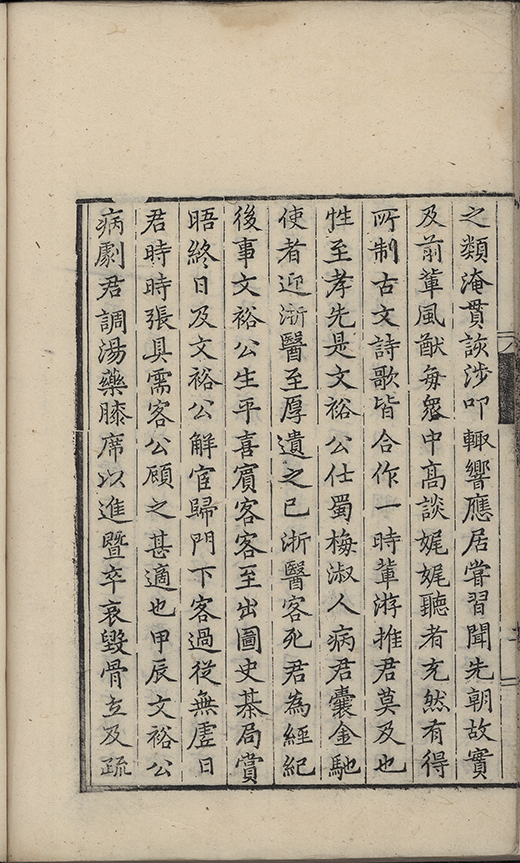 之類淹貫詼涉叩輙響應居嘗習聞先朝故實
及前輩風猷每衆中高談娓娓聽者充然有得
所制古文詩歌皆合作一時輩游推君莫及也
性至孝先是文裕公仕蜀梅淑人病君囊金馳
使者迎浙醫至厚遺之已浙醫客死君為經紀
後事文裕公生平喜賓客客至出圖史棊局賞
晤終日及文裕公解宦歸門下客過從無虛日
君時時張具需客公顧之甚適也甲辰文裕公
病劇君調湯藥膝席以進暨卒哀毀骨立及疏